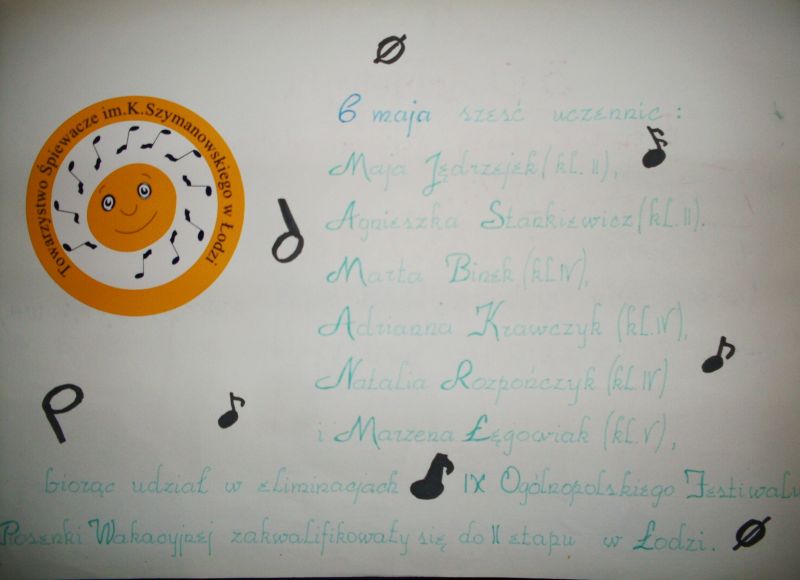 Towarzystwo Śpiewacze im.K.Szymanowskiego w Łodzi
6 maja sześć uczennic :
Maja Jędrzejek (kl. II),
Agnieszka Stankiewicz (kl. II).
Marta Binek (kl. IV),
Adrianna Krawczyk (kl. IV),
Natalia Rozpończyk (kl. IV)
i Marzena Łęgowiak (kl. V),
biorąc udział w eliminacjach IX Ogólnopolskiego Festiwalu
Posenki Wakacyjnej zakwalifikowały się do II etapu w Łodzi.